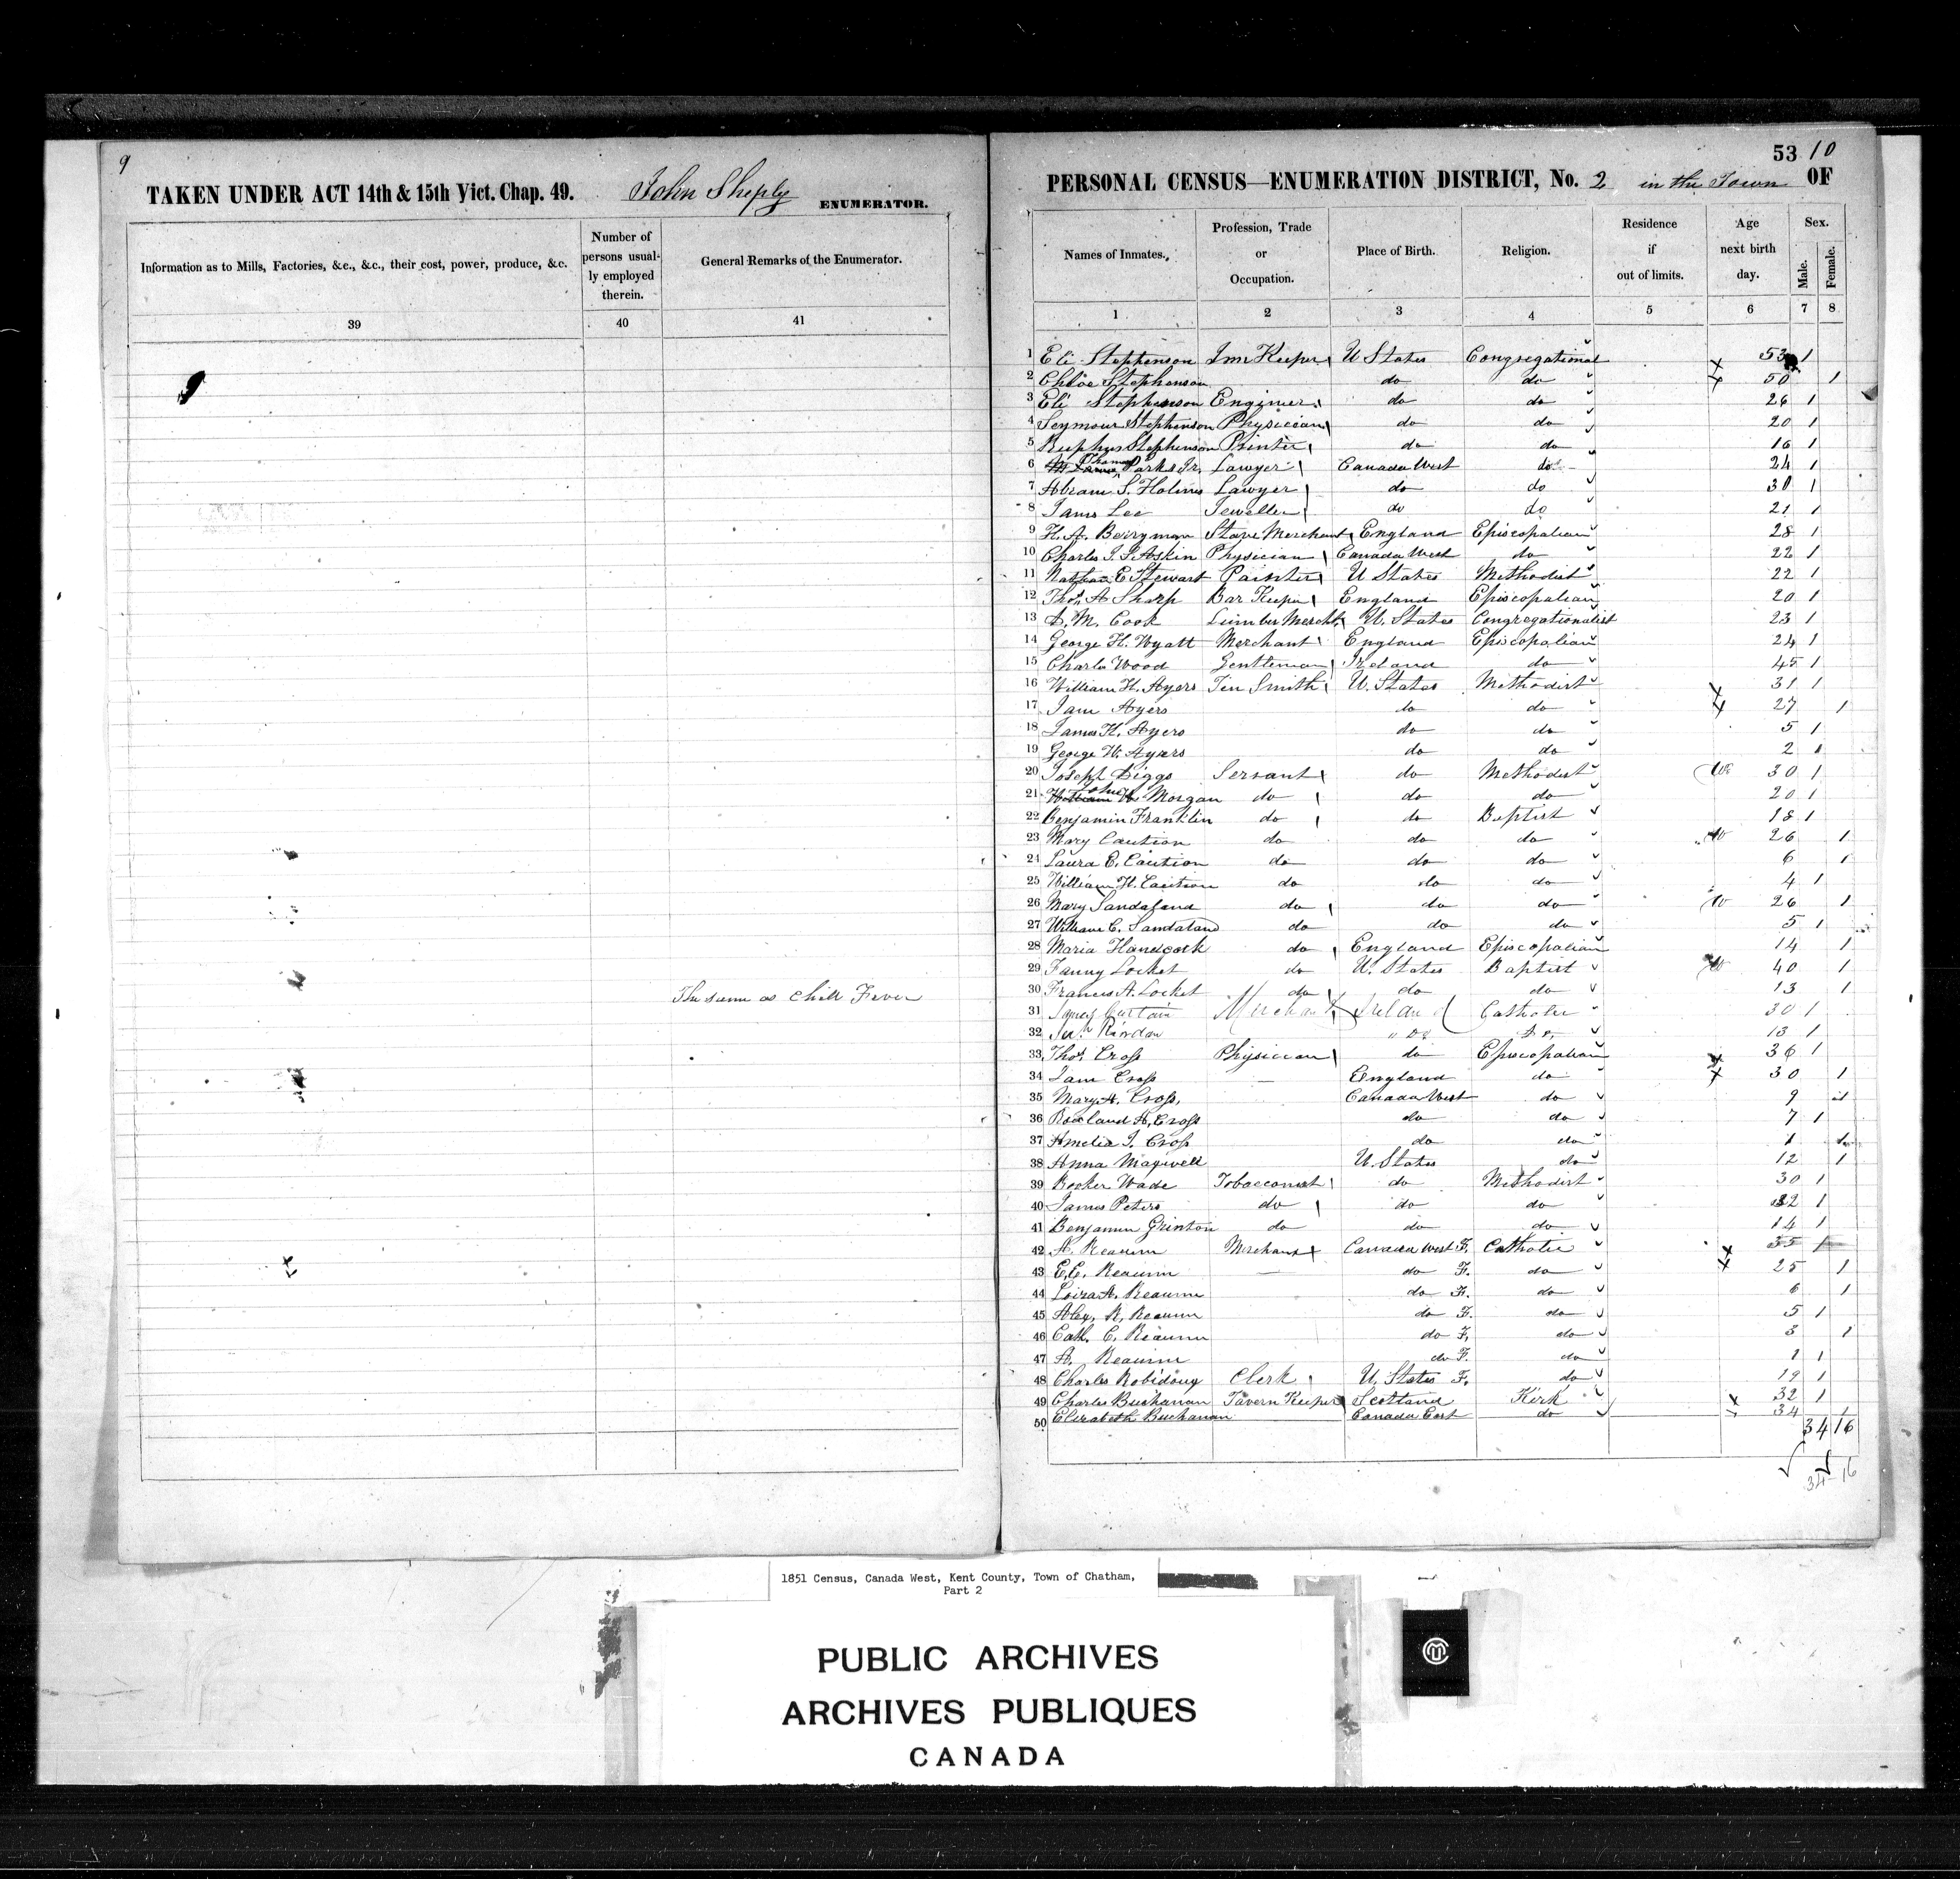 9
TAKEN UNDER ACT 14th & 15th Vict. Chap. 49. John Sheply ENUMERATOR.
Information as to Mills, Factories, &c., &c., their cost, power, produce, &c.
Number of persons usual-
ly employed
therein.
General Remarks of the Enumerator.
39 40 41
The same as Chill Fever
53 10
PERSONAL CENSUS—ENUMERATION DISTRICT, No. 2 in the Town OF
Names of Inmates.
Profession, Trade
or
Occupation.
Place of Birth.
Religion.
Residence
if
out of limits.
Age
next birth
day.
Sex.
Male. Female.
1 2 3 4 5 6 7 8
1 Eli Stephenson Inn Keeper U States Congregational 53 1
2 Chloe Stephenson do do 50 1
3 Eli Stephenson Engineer do do 26 1
4 Seymour Stephenson Physician do do 20 1
5 Ruphus Stephenson Printer do do 16 1
6 Thomas Parks Jr. Lawyer Canada West do 24 1
7 Abram S. Holmes Lawyer do do 30 1
8 James Lee Jeweller do do 21 1
9 H. A. Berryman Stave Merchant England Episcopalian 28 1
10 Charles J. Askin Physician Canada West do 22 1
11 Nathan E Stewart Painter U States Methodist 22 1
12 Thos. A Sharp Bar Keeper England Episcopalian 20 1
13 D. M. Cook Lumber Mercht U. States Congregationalist 23 1
14 George H. Wyatt Merchant England Episcopalian 24 1
15 Charles Wood Gentleman Ireland do 45 1
16 William H. Ayers Tin Smith U. States Methodist 31 1
17 Jane Ayers do do 27 1
18 James H. Ayers do do 5 1
19 George W. Ayers do do 2 1
20 Joseph Diggs Servant do Methodist 30 1
21 John Morgan do do do 20 1
22 Benjamin Franklin do do Baptist 18 1
23 Mary Caution do do do 26 1
24 Laura E. Caution do do do 6 1
25 William H. Caution do do do 4 1
26 Mary Sandaland do do do 26 1
27 William C. Sandaland do do do 5 1
28 Maria Handcock do England Episcopalian 14 1
29 Fanny Locket do U. States Baptist 40 1
30 Francis A. Locket do do do 13 1
31 James Curtain Merchant Ireland Catholic 30 1
32 Riordan " Do Do 13 1
33 Thos. Cross Physician do Episcopalian 36 1
34 Jane Cross — England do 30 1
35 Mary A. Cross, Canada West do 9 1
36 Rowland H. Cross do do 7 1
37 Amelia J. Cross do do 1 1
38 Anna Maxwell U. States do 12 1
39 Booker Wade Tobacconist do Methodist 30 1
40 James Peters do do do 32 1
41 Benjamin Grinton do do do 14 1
42 A. Reaume Merchant Canada West F. Catholic 35 1
43 E.C. Reaume — do F. do 25 1
44 Loiza A. Reaume do F. do 6 1
45 Alex. R. Reaume do F. do 5 1
46 Cath. C. Reaume do F. do 3 1
47 A. Reaume do F. do 1 1
48 Charles Robidoux Clerk U. States F. do 19 1
49 Charles Buchanan Tavern Keeper Scotland Kirk 32 1
50 Elizabeth Buchanan Canada East do 34 1
34 16
34 - 16
1851 Census, Canada West, Kent County, Town of Chatham,
Part 2
PUBLIC ARCHIVES
ARCHIVES PUBLIQUES
CANADA